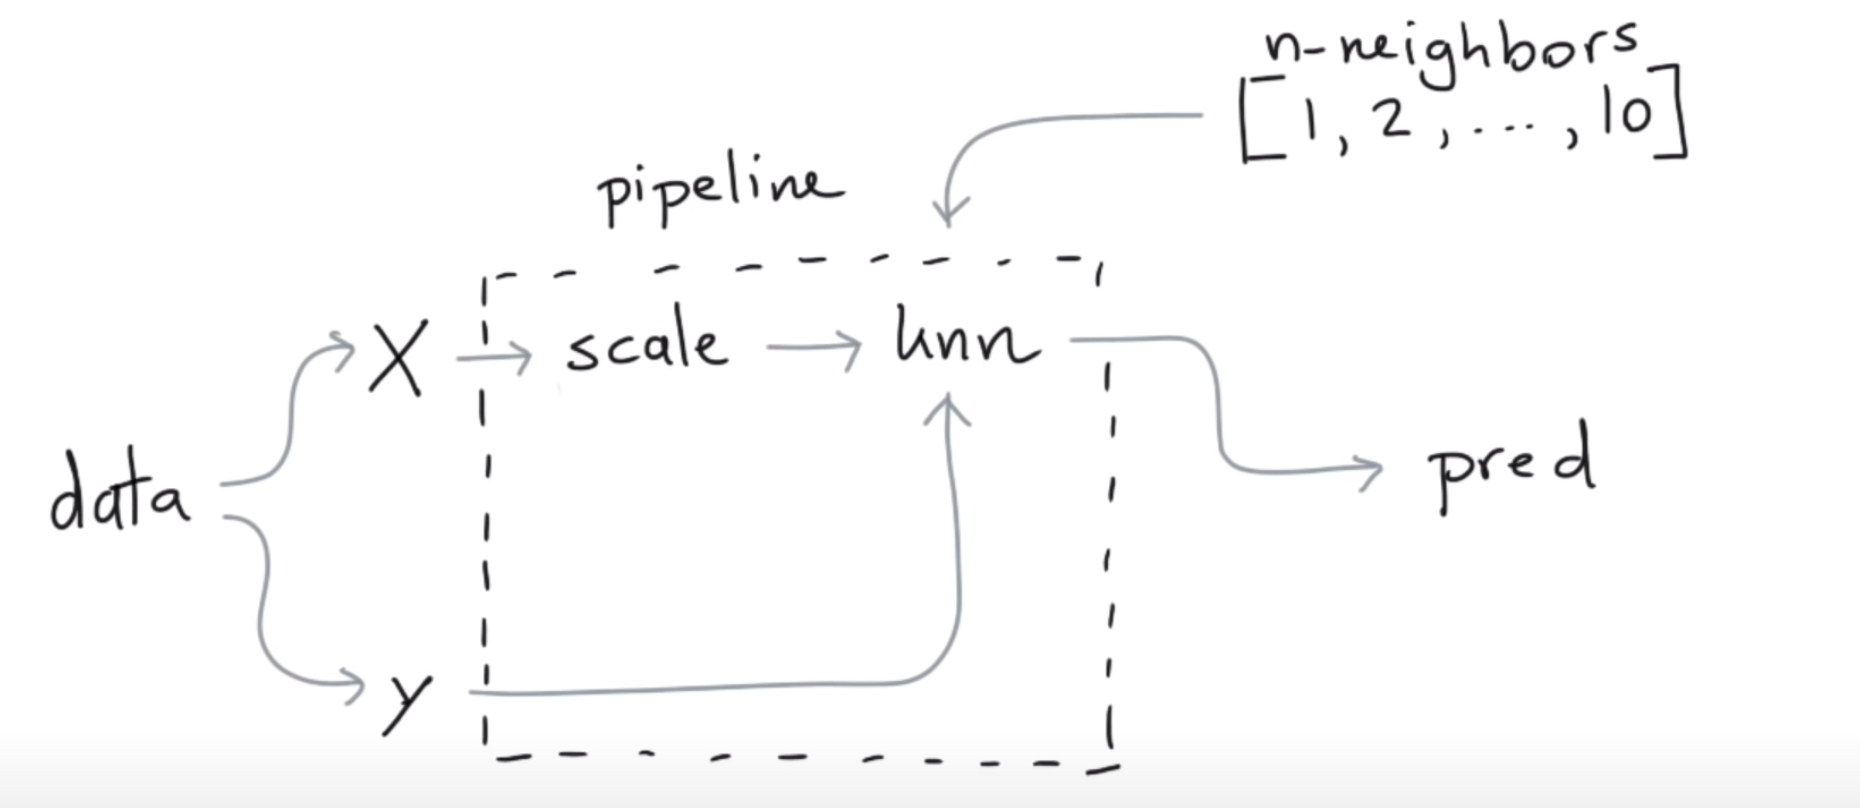 n-neighbors
[1, 2, ..., 10]
pipeline
X
scale
knn
data
pred
y